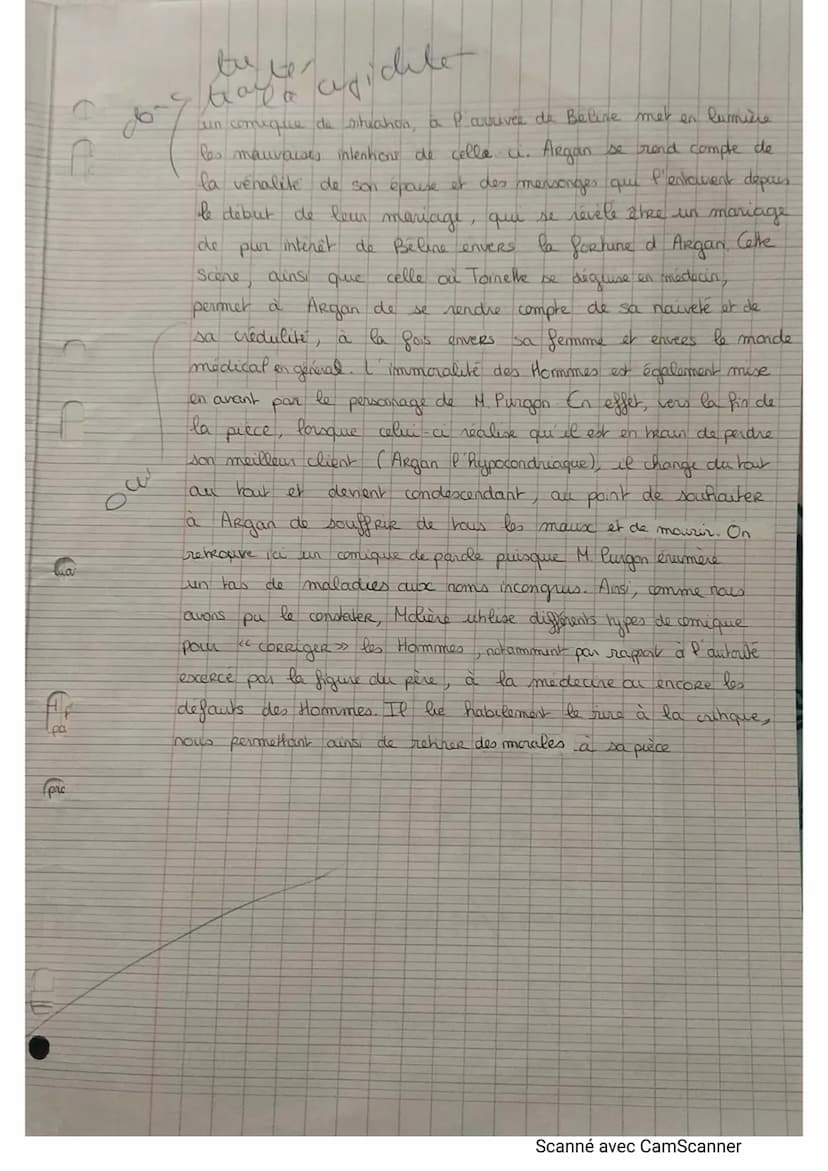 tu
un comique de situation, à l'arrivée de Béline met en lumière
les mauvaises intentions de celle ci. Argan se rend compte de
la vénalité de son épouse et des mensonges qui l'entourent depuis
le début de leur mariage, qui se révèle être un mariage
de pur intérêt de Béline envers la fortune d'Argan. Cette
scène, ainsi que celle où Toinette se déguise en médecin,
permet à Argan de se rendre compte de sa naïveté et de
sa crédulité, à la fois envers sa femme et envers le monde
médical en général. L'immoralité des Hommes est également mise
en avant par le personnage de M. Purgon. En effet, vers la fin de
la pièce, lorsque celui-ci réalise qu'il est en train de perdre
son meilleur client (Argan l'Hypocondriaque), il change du tout
au tout et devient condescendant, au point de souhaiter
à Argan de souffrir de tous les maux et de mourir. On
retrouve ici un comique de parole puisque M. Purgon énumère
un tas de maladies aux noms incongrus. Ainsi, comme nous
avons pu le constater, Molière utilise différents types de comique
pour « corriger » les Hommes, notamment par rapport à l'autorité
exercé par la figure du père, à la médecine ou encore les
défauts des Hommes. Il lie habilement le à la critique,
nous permettant ainsi de retirer des morales à sa pièce
oui
Scanné avec CamScanner